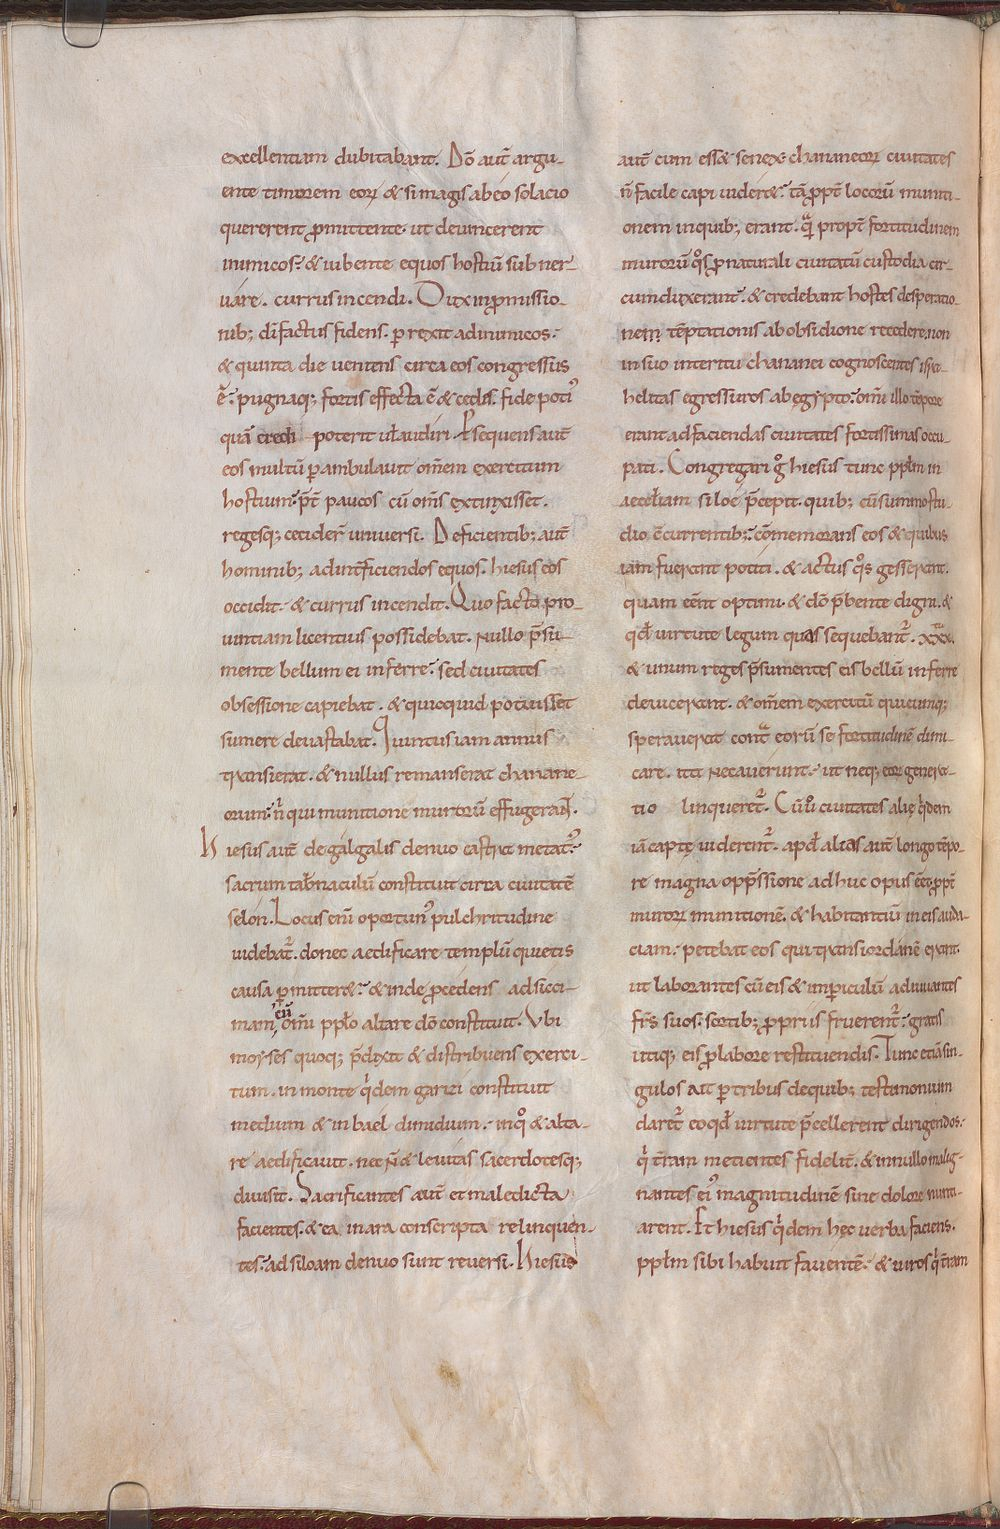 excellentiam dubitabant. Dō aut̄ argu-
ente timorem eorꝝ & si magis ab eo solacio
quererent ꝓmittente. ut deuincerent
inimicos. & iubente equos hostiū subner-
uare. currus incendi. Dux inꝓmissio-
nib; dī factus fidens. perrexit ad inimicos.
& quinta die ueniens circa eos congressus
ē. pugnaq; fortis effecta ē & cedis. fide poti᷒
quā credi poterit ul̄ audiri. Ꝑsequens aut̄
eos multū ꝑambulauit om̄em exercitum
hostium. p̄t paucos cū om̄s extinxisset.
regesq; cecider̄ uniuersi. Deficientib; aut̄
hominib; ad interficiendos equos. hiesus eos
occidit. & currus incendit. Quo facto pro-
uintiam licentius possidebat. nullo p̄su-
mente bellum ei inferre. sed ciuitates
obsessione capiebat. & quicquid potuisset
sumere deuastabat. Quintus iam annus
transierat. & nullus remanserat chanane-
orum. n̄ qui munitione murorū effugerat.
Hiesus aut̄ de galgalis denuo castra metat᷒
sacrum tab̄naculū constituit circa ciuitatē
selon. Locus enī oportun᷒ pulchritudine
uidebat̄. donec aedificare templū quietis
causa ꝑmitter&. & inde ꝓcedens ad sicci-
mam cū om̄i pplo altare dō constituit. Ubi
moyses quoq; p̄dixit & distribuens exerci-
tum. in monte qdem garizi constituit
medium & in bael dimidium. in qo & alta-
re aedificauit. nec n̄ & leuitas sacerdotesq;
diuisit. Sacrificantes aut̄ et maledicta
facientes. & ea in ara conscripta relinquen-
tes. ad siloam denuo sunt reuersi. Hiesus
aut̄ cum ess& senex. chananeorꝝ ciuitates
n̄ facile capi uider&. tā ꝓpt̄ locorū muniti-
onem in quib; erant. quā propt̄ fortitudinem
murorū qos ꝓ naturali ciuitatū custodia cir-
cumduxerant. & credebant hostes desperatio-
nem tēptationis ab obsidione recedere. non
in suo interitu chananei cognoscentes isra-
helitas egressuros ab egypto. om̄i illo tēpore
erant ad faciendas ciuitates fortissimas occu-
pati. Congregari go hiesus tunc pplm in
aecclīam siloe p̄cepit. quib; cū summo stu-
dio c̄currentib;. cōmemorans eos & quibus
iam fuerant potiti. & actus qos gesserant.
quam eēnt optimi. & dō p̄bente digni. &
qd uirtute legum quas sequebant̄. xxx.
& unum reges p̄sumentes eis bellū inferre
deuicerant. & om̄em exercitū quicumq;
sperauerat contra eorū se fortitudinē dimi-
care. ita necauerunt. ut neq; eorꝝ genera-
tio linqueret̄. Cū uo ciuitates alię qdem
iā captę uiderent̄. apd alias aut̄ longo tēpo-
re magna opp̄ssione adhuc opus eēt ꝓpt̄
murorꝝ munitionē. & habitantiū in eis auda-
ciam. petebat eos qui trans iordanē erant.
ut laborantes cū eis & in periculū adiuuantes
fr̄s suos. sortib; ꝓpriis fruerent̄. gratis
utiq; eis ꝓ labore restituendis. Tunc etiā sin-
gulos ait ꝑ tribus de quib; testimonium
daret̄ eo qd uirtute p̄cellerent dirigendos.
qi t̄ram metientes fidelit̄. & in nullo malig-
nantes ei᷒ magnitudinē sine dolore nunti-
arent. Et hiesus qdem hęc uerba faciens.
pplm sibi habuit fauentē. & uiros qi t̄ram